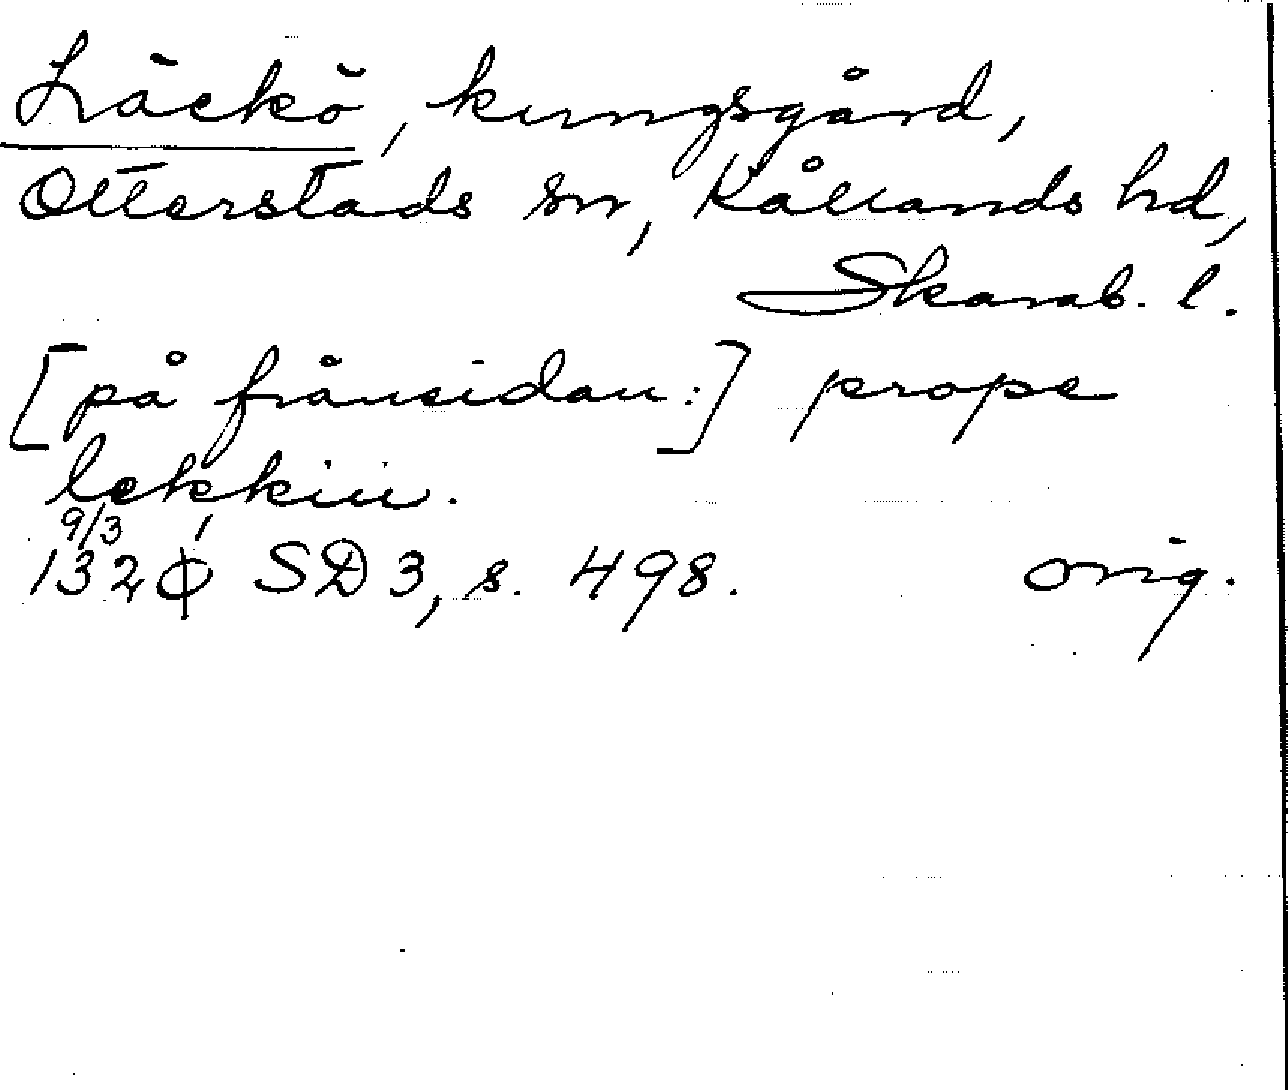 Läckö, kungsgård,
Otterstads sn, Kållands hd,
Skarab. l.
[på frånsidan:] prope
lekkiu.
9/3
1320 SD 3, s. 498. orig.